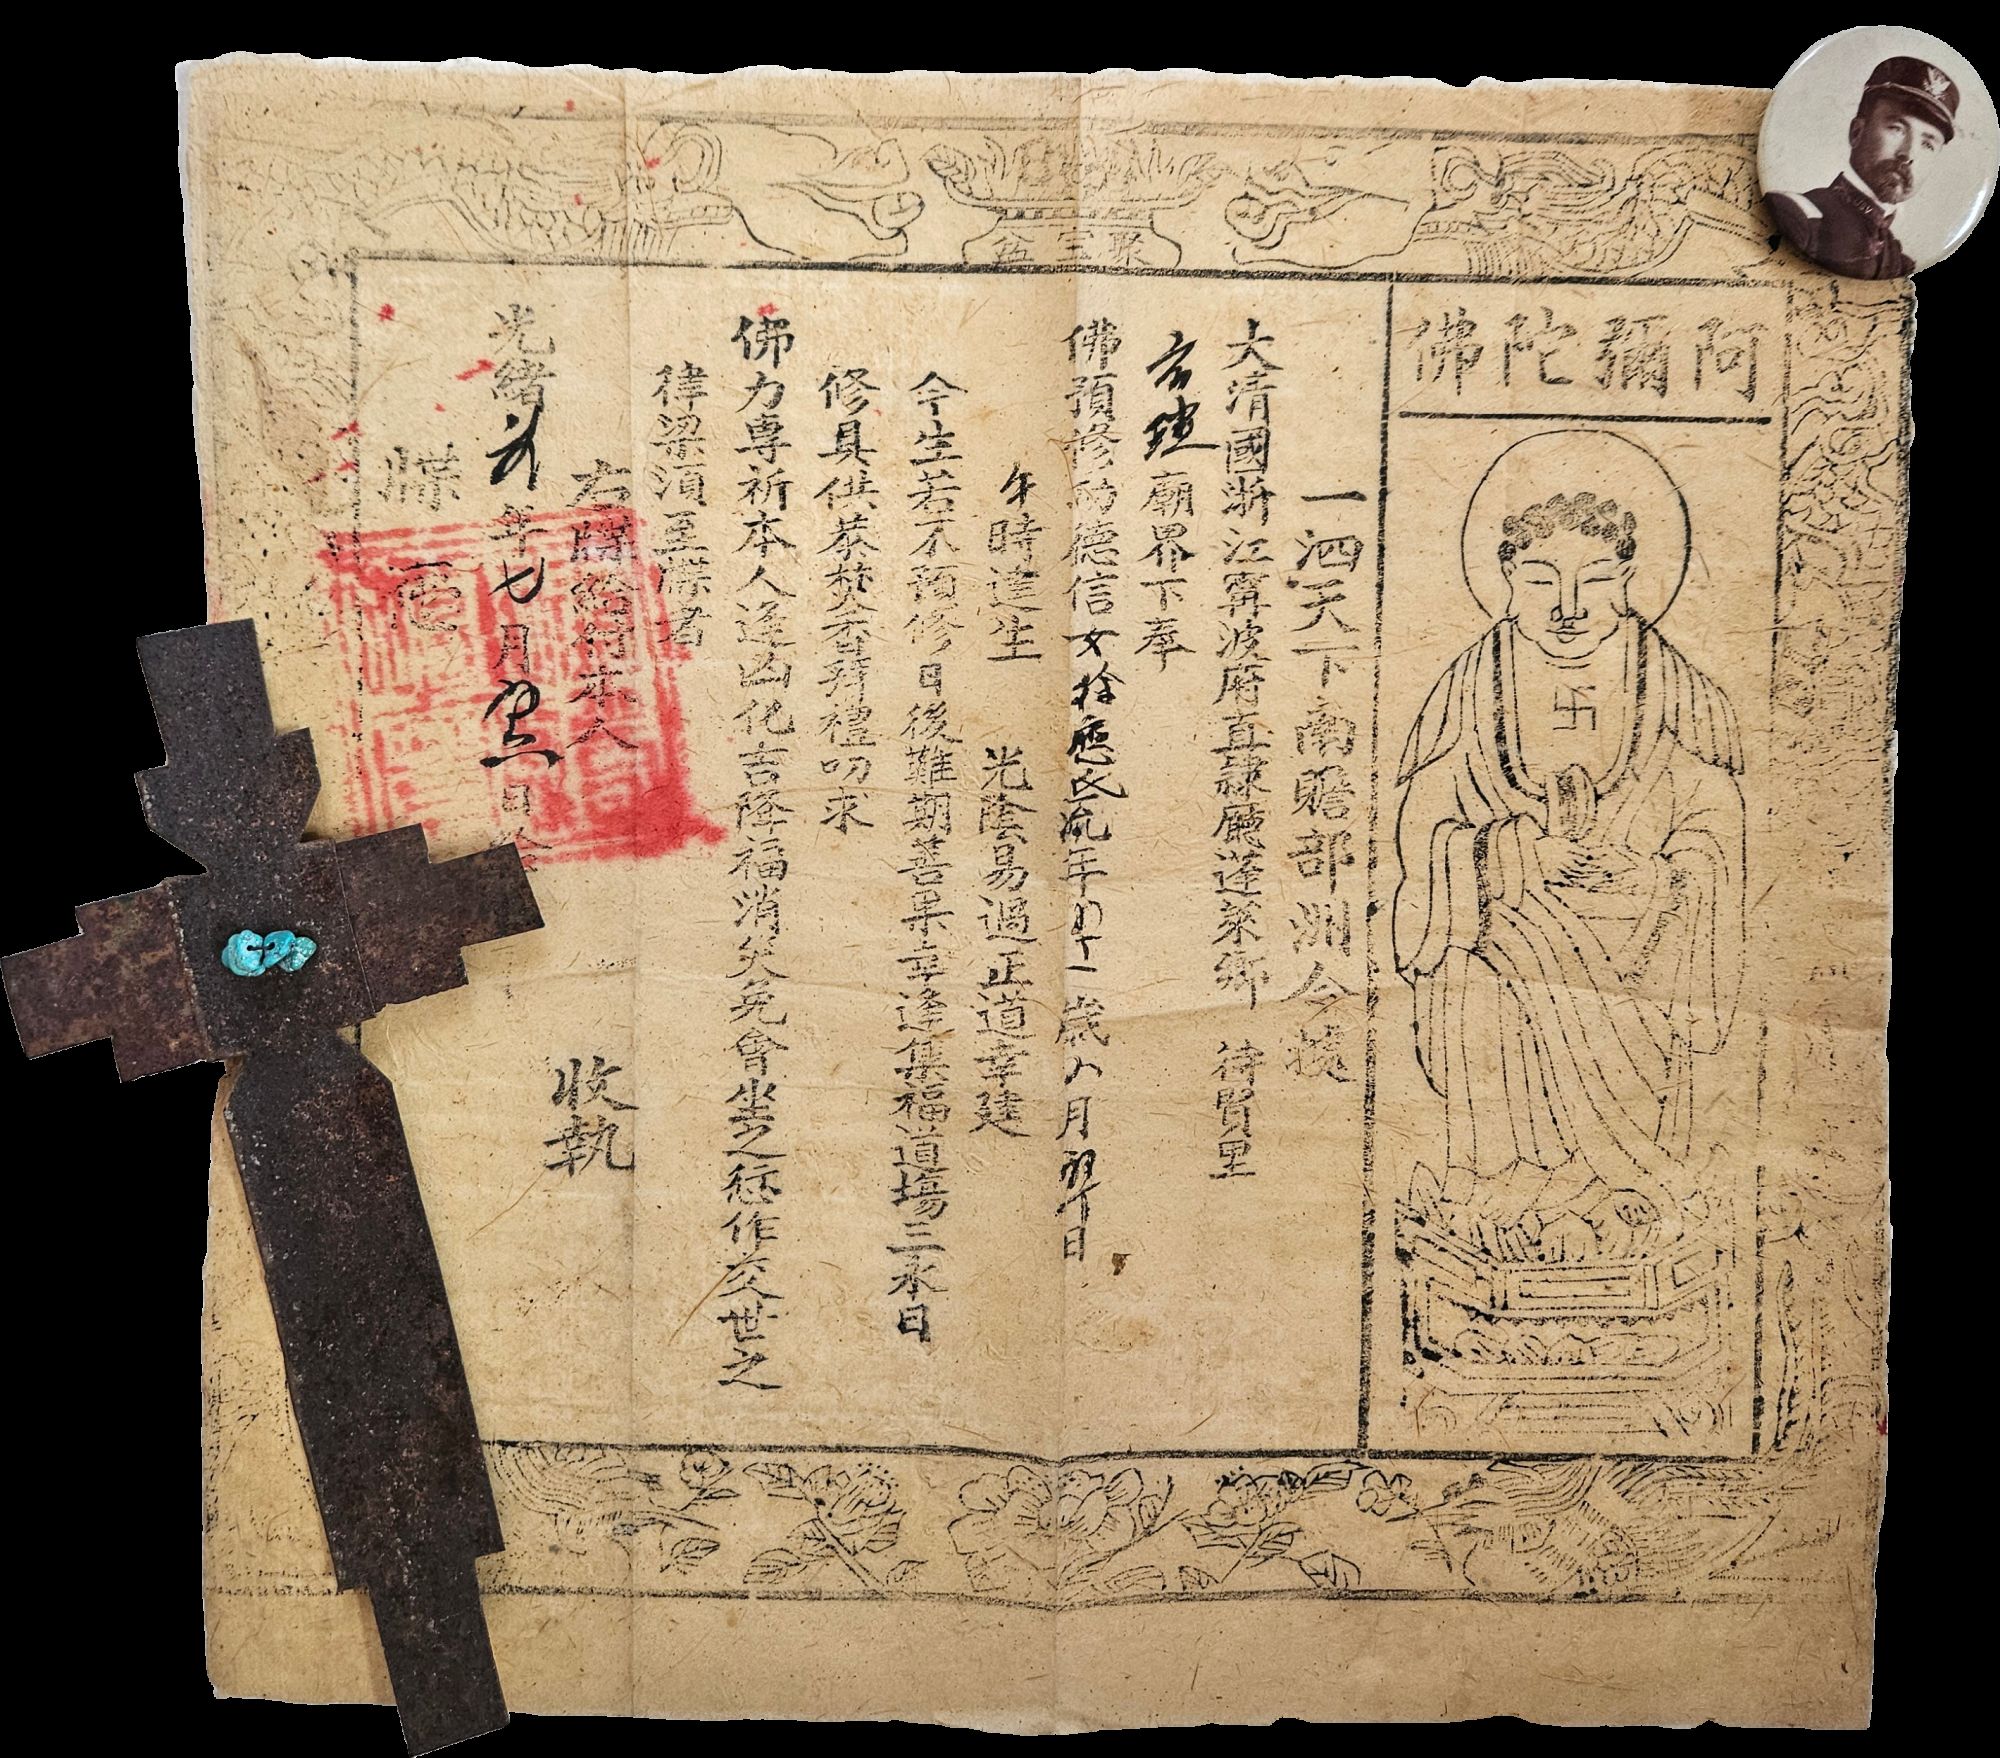 聚宝盆
阿彌陀佛
一泗天下南贍部洲今據
大清國浙江寧波府直隸廳蓬萊鄉 待賢里
廟界下奉
佛預修功德信女 氏流年 十一歲八月 日
午時建生 光陰易過正道幸建
今生若不預修日後難期善果幸逢集福道場三永日
修具供恭焚香拜禮叩求
佛力專祈本人逢凶化吉降福消災免會坐之愆作交世之
律梁須至牒者
右牒給付本人 收執
光緒 年七月 日給
牒